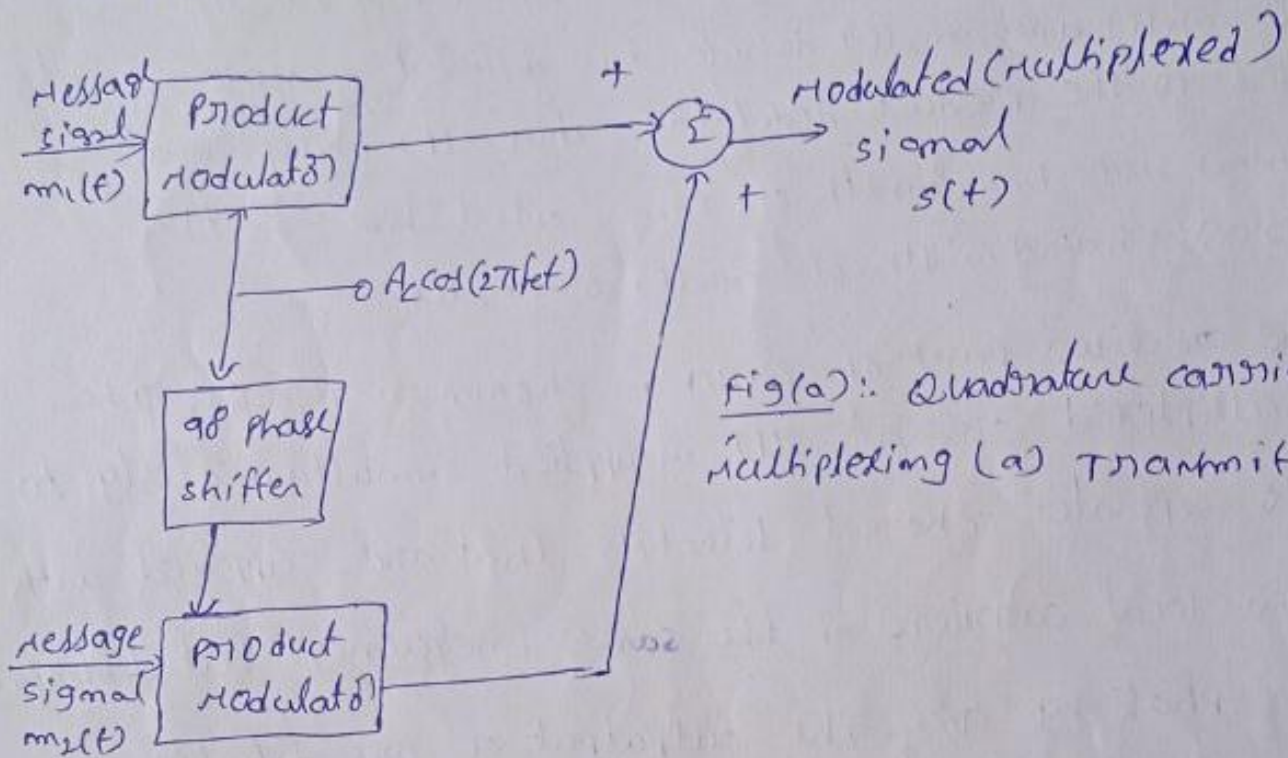 Message
signal
m₁(t)
Product
Modulator
+
Σ
+
Modulated (Multiplexed)
signal
s(t)
A_c cos(2πf_ct)
98 phase
shifter
Fig(a):. Quadrature carri
Multiplexing (a) Transmit
Message
signal
m₂(t)
product
Modulator